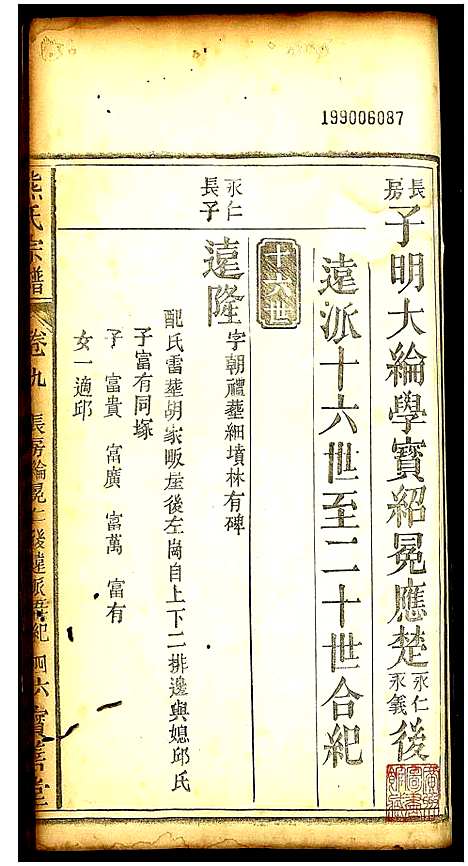 199006087
長房子明大綸學寶紹冕應楚永仁永義後
遠派十六世至二十世合紀
十六世
永仁長子
遠隆字朝禮葬細墳林有碑
配氏雷葬胡家畈崖後左崗自上下二排邊與媳邱氏
子富有同塚
子 富貴 富廣 富萬 富有
女一適邱
熊氏宗譜 卷九 長房綸冕仁後遠派 紀 四六寶善堂